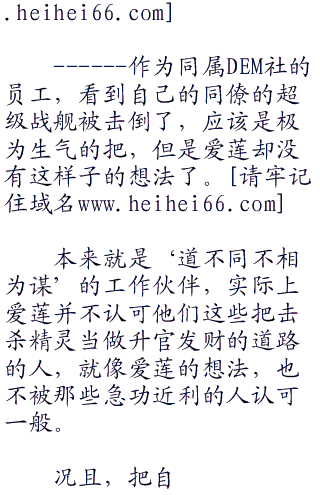 .heihei66.com]
------作为同属DEM社的
员工，看到自己的同僚的超
级战舰被击倒了，应该是极
为生气的把，但是爱莲却没
有这样子的想法了。[请牢记
住域名www.heihei66.com]
本来就是‘道不同不相
为谋’的工作伙伴，实际上
爱莲并不认可他们这些把击
杀精灵当做升官发财的道路
的人，就像爱莲的想法，也
不被那些急功近利的人认可
一般。
况且，把自